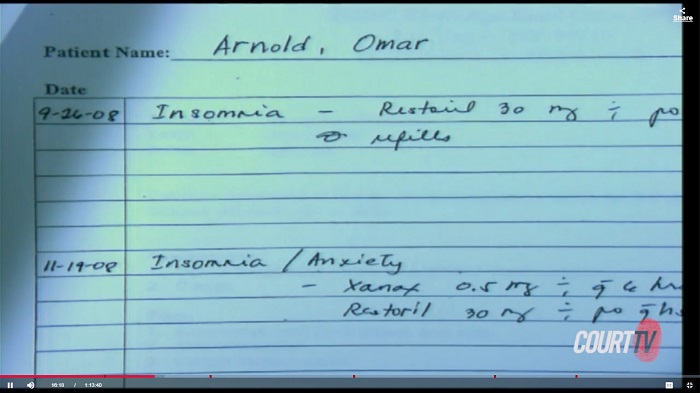 Share
Patient Name: Arnold, Omar
Date
9-26-08 Insomnia - Restoril 30 mg ÷ po
0 refills
11-19-08 Insomnia / Anxiety
- Xanax 0.5 mg ÷ q̄ 6 hr
Restoril 30 mg ÷ po q̄ hs
COURT TV
16:10 / 1:13:40